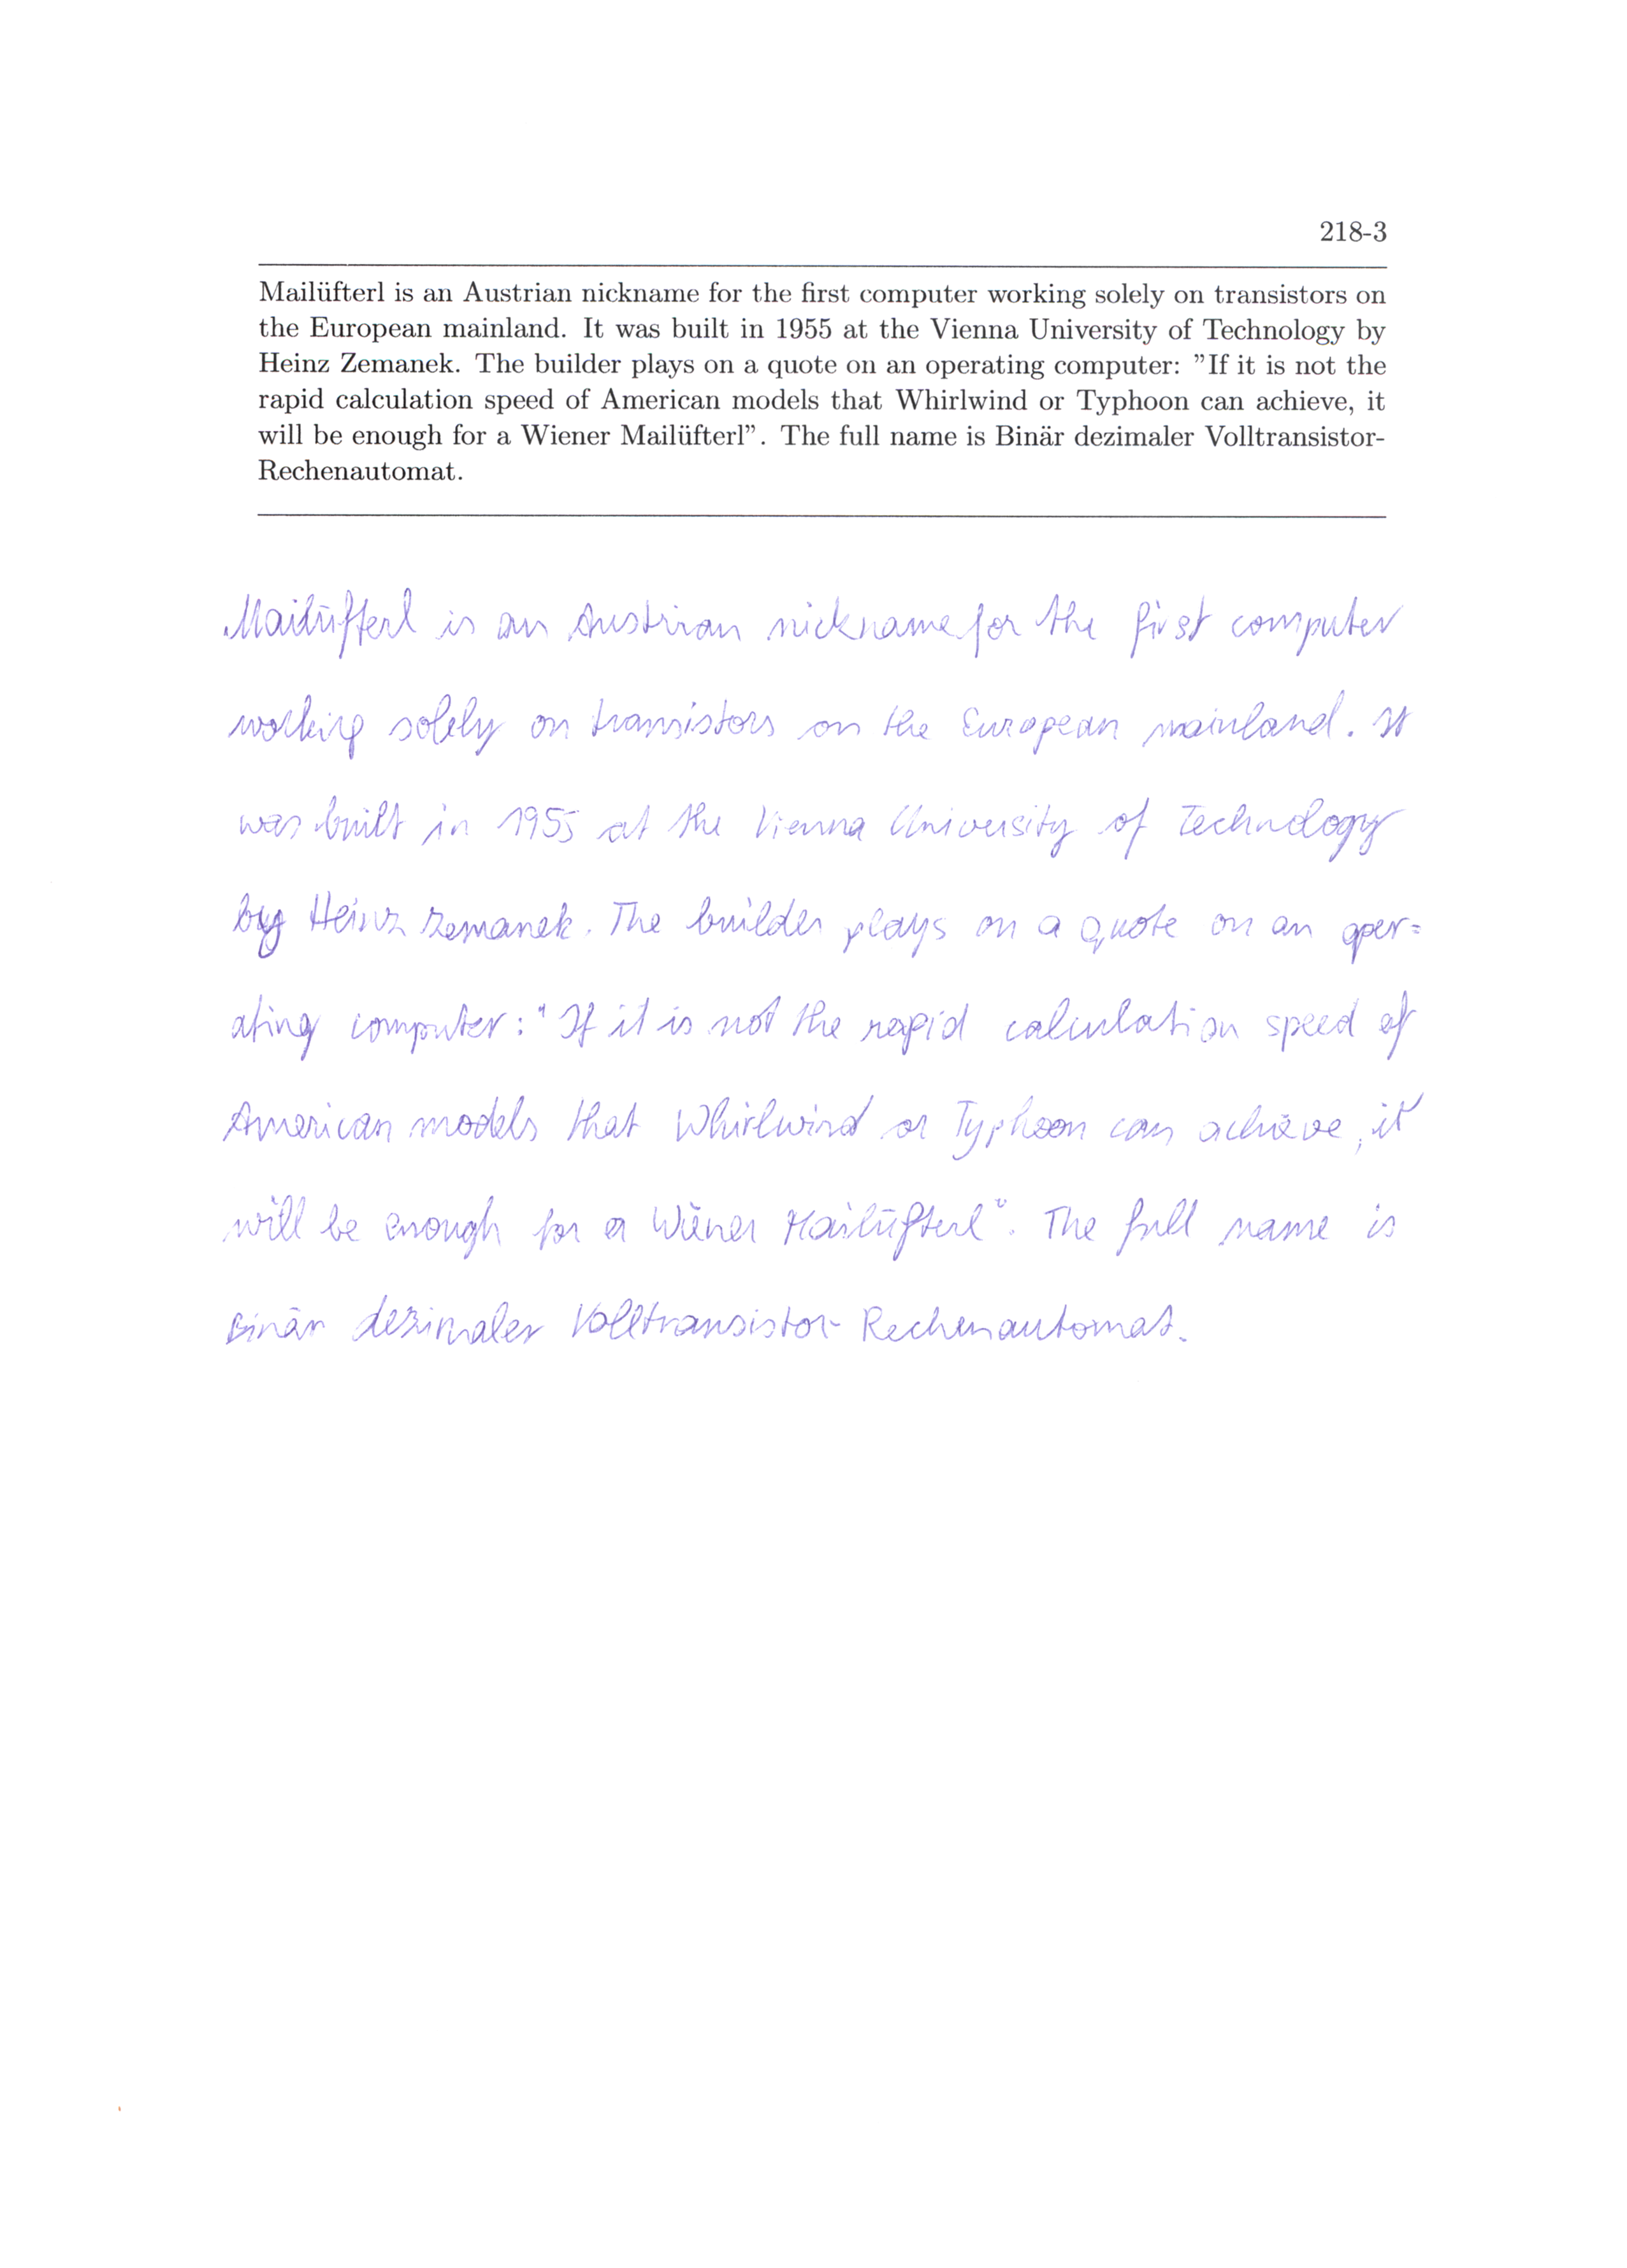 218-3
Mailüfterl is an Austrian nickname for the first computer working solely on transistors on
the European mainland. It was built in 1955 at the Vienna University of Technology by
Heinz Zemanek. The builder plays on a quote on an operating computer: "If it is not the
rapid calculation speed of American models that Whirlwind or Typhoon can achieve, it
will be enough for a Wiener Mailüfterl". The full name is Binär dezimaler Volltransistor-
Rechenautomat.
Mailüfterl is an Austrian nickname for the first computer
working solely on transistors on the European mainland. It
was built in 1955 at the Vienna University of Technology
by Heinz Zemanek. The builder plays on a quote on an oper=
ating computer: "If it is not the rapid calculation speed of
American models that Whirlwind or Typhoon can achieve, it
will be enough for a Wiener Mailüfterl". The full name is
Binär dezimaler Volltransistor-Rechenautomat.